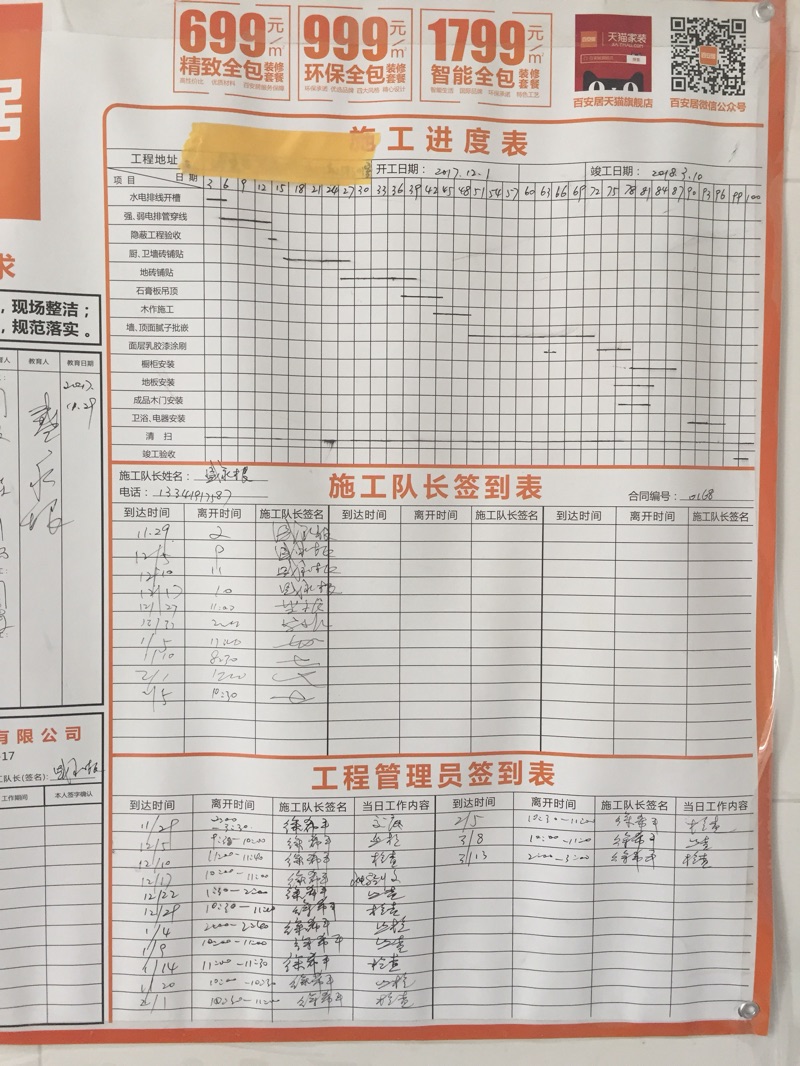 699元/㎡
精致全包装修套餐
高性价比 优质材料 百安居服务保障
999元/㎡
环保全包装修套餐
环保承诺 优选品牌 四大风格 精心设计
1799元/㎡
智能全包装修套餐
智能安逸 国际品牌 环保承诺 特色工艺
天猫家装
百安居天猫旗舰店
百安居微信公众号
居
求
，现场整洁；
，规范落实。
教育人 教育日期
2017.
11.29
盛永根
有限公司
-17
工队长(签名):
工作期间 本人签字确认
施工进度表
工程地址 开工日期: 2017.12.1 竣工日期: 2018.3.10
项目 日期 3 6 9 12 15 18 21 24 27 30 33 36 39 42 45 48 51 54 57 60 63 66 69 72 75 78 81 84 87 90 93 96 99 100
水电排线开槽
强、弱电排管穿线
隐蔽工程验收
厨、卫墙砖铺贴
地砖铺贴
石膏板吊顶
木作施工
墙、顶面腻子批嵌
面层乳胶漆涂刷
橱柜安装
地板安装
成品木门安装
卫浴、电器安装
清 扫
竣工验收
施工队长签到表
施工队长姓名: 盛永根
电话: 13341917587
合同编号: 0168
到达时间 离开时间 施工队长签名 到达时间 离开时间 施工队长签名 到达时间 离开时间 施工队长签名
11.29 2
12/5 9
12/10 11
12/17 10
12/27 11:00
1/5
1/10 8:30
2/1
2/5 10:30
工程管理员签到表
到达时间 离开时间 施工队长签名 当日工作内容 到达时间 离开时间 施工队长签名 当日工作内容
11/29 2:00—3:30 徐希平 交底 2/5 10:30—11:00 徐希平 检查
12/5 徐希平 3/8 10:00—11:00 徐希平
12/10 11:00—11:40 徐希平 检查 3/13 2:00—3:00 徐希平 检查
12/17 10:00—11:00 徐希平
12/22 1:30—2:00 徐希平
12/29 10:30—11:00 徐希平 检查
1/4 徐希平
1/9 10:00—11:00 徐希平
1/14 11:00—11:30 徐希平 检查
1/20 10:00—10:30 徐希平
2/1 10:30—11:00 徐希平 检查